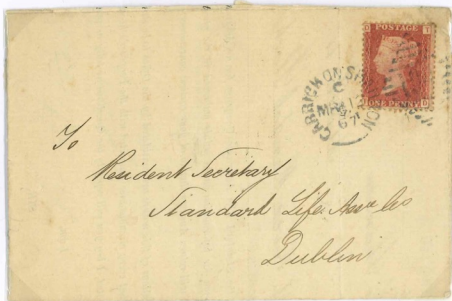 POSTAGE
ONE PENNY
CARRICK ON SHANNON
C
67
To
Resident Secretary
Standard Life Assce Co
Dublin